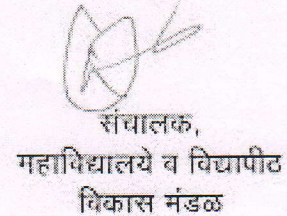 संचालक,
महाविद्यालये व विद्यापीठ
विकास मंडळ